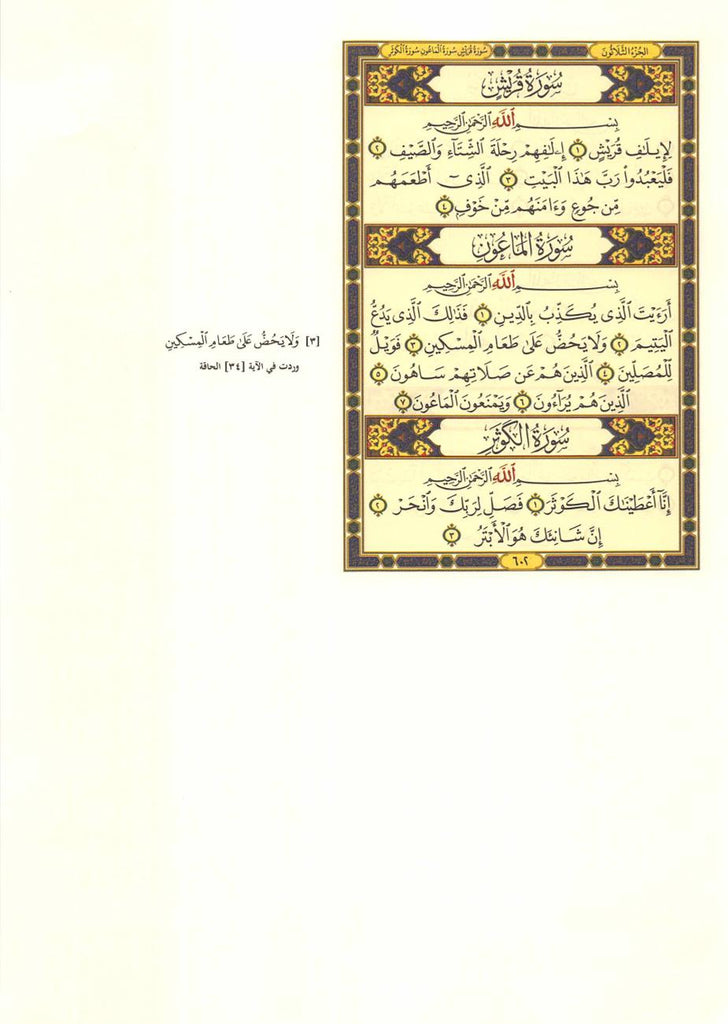 الجزء الثلاثون
سورة قريش سورة الماعون سورة الكوثر
سُورَةُ قُرَيْشٍ
بِسْمِ اللَّهِ الرَّحْمَٰنِ الرَّحِيمِ
لِإِيلَٰفِ قُرَيْشٍ ١ إِۦلَٰفِهِمْ رِحْلَةَ الشِّتَآءِ وَالصَّيْفِ ٢
فَلْيَعْبُدُوا۟ رَبَّ هَٰذَا الْبَيْتِ ٣ الَّذِىٓ أَطْعَمَهُم
مِّن جُوعٍ وَءَامَنَهُم مِّنْ خَوْفٍۭ ٤
سُورَةُ الْمَاعُونِ
بِسْمِ اللَّهِ الرَّحْمَٰنِ الرَّحِيمِ
أَرَءَيْتَ الَّذِى يُكَذِّبُ بِالدِّينِ ١ فَذَٰلِكَ الَّذِى يَدُعُّ
الْيَتِيمَ ٢ وَلَا يَحُضُّ عَلَىٰ طَعَامِ الْمِسْكِينِ ٣ فَوَيْلٌ
لِّلْمُصَلِّينَ ٤ الَّذِينَ هُمْ عَن صَلَاتِهِمْ سَاهُونَ ٥
الَّذِينَ هُمْ يُرَآءُونَ ٦ وَيَمْنَعُونَ الْمَاعُونَ ٧
سُورَةُ الْكَوْثَرِ
بِسْمِ اللَّهِ الرَّحْمَٰنِ الرَّحِيمِ
إِنَّآ أَعْطَيْنَٰكَ الْكَوْثَرَ ١ فَصَلِّ لِرَبِّكَ وَانْحَرْ ٢
إِنَّ شَانِئَكَ هُوَ الْأَبْتَرُ ٣
٦٠٢
[٣] وَلَا يَحُضُّ عَلَىٰ طَعَامِ الْمِسْكِينِ
وردت في الآية [٣٤] الحاقة